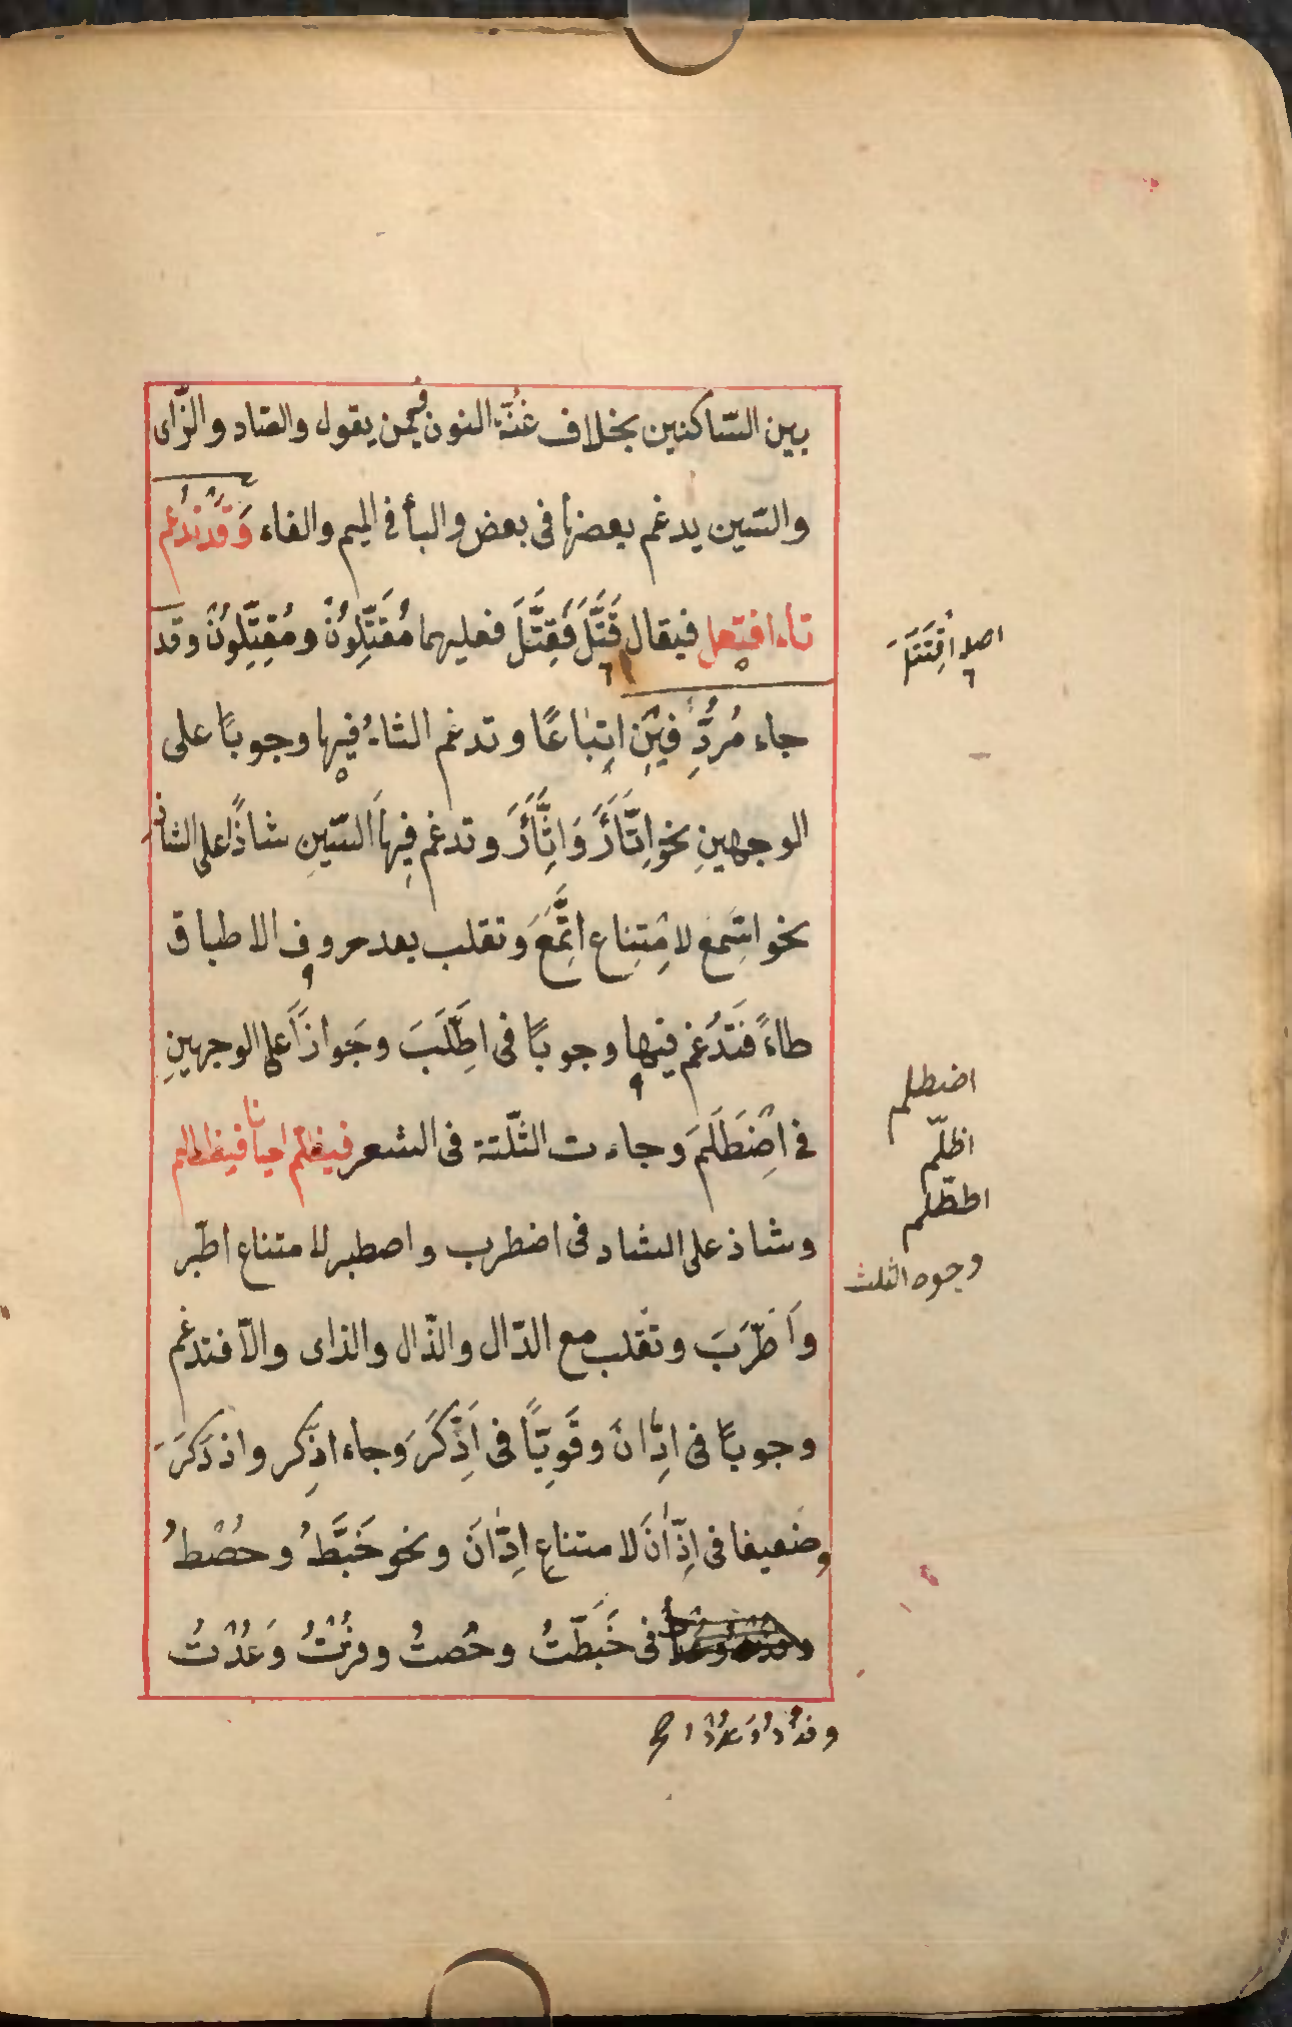 بين السّاكنين بخلاف غُنّة النون فيمن يقول والصّاد والزّاى
والسّين يدغم بعضها فى بعض والبأ في الميم والفاء وَقَدْ تُدْغم
تاء افتعل فيقال قَتَّلَ وَقِتَّلَ فعليهما مُقَتِّلُونَ ومُقِتِّلُونَ وقد
جاء مُرُدِّفينِ اتِبَاعًا وتدغم الثاءُ فيها وجوبًا على
الوجهينِ نحو اتَّأَرَ وَاثَّأَرَ وتدغم فِيهَا السّينِ شاذًا على الشاذ
نحو اسَّمع لامْتِناع اتَّمَعَ وتقلب بعد حروف الاطباق
طاءً فَتُدْغم فيها وجوبًا فى اطَّلَبَ وجَوازًا على الوجهينِ
فى اضْطَلَمَ وجاءت الثّلثة فى الشعر فيظلم احيانا فيظطلم
وشاذ على الشاد فى اضطرب واصطبر لامتناع اطّبر
وَاَطَّرَبَ وتقلب مع الدّال والذّال والذاى والّا فتدغم
وجوبًا فى ادّانَ وقَوِيًّا فى اَذِّكَرَ وجاء اذّكر واذدَكَرَ
وضعيفا فى اذّانَ لامتناع ادّانَ ونحو خَبَطُّ وحُصْطُ
فى خَبَطْتُ وحُصتُ وفزْتُ وَعُدْتُ
وفزْدُ وَعُدُّ
اصله اقْتَتَلَ
اضطلم
اظلّم
اططّلم
وجوه الثلث